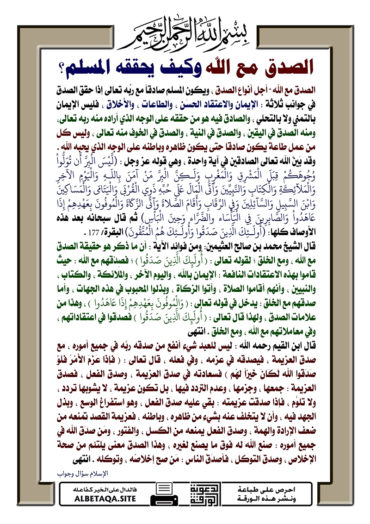 بسم الله الرحمن الرحيم
الصدق مع الله وكيف يحققه المسلم؟
الصدق مع الله - أجل أنواع الصدق ، ويكون المسلم صادقاً مع ربّه تعالى إذا حقق الصدق
في جوانب ثلاثة : الإيمان والاعتقاد الحسن ، والطاعات ، والأخلاق ، فليس الإيمان
بالتمني ولا بالتحلي ، والصادق فيه هو من حققه على الوجه الذي أراده منه ربه تعالى،
ومنه الصدق في اليقين ، والصدق في النية ، والصدق في الخوف منه تعالى ، وليس كل
من عمل طاعة يكون صادقا حتى يكون ظاهره وباطنه على الوجه الذي يحبه الله .
وقد بيَّن الله تعالى الصادقين في آية واحدة ، وهي قوله عز وجل : (لَيْسَ الْبِرَّ أَن تُوَلُّواْ
وُجُوهَكُمْ قِبَلَ الْمَشْرِقِ وَالْمَغْرِبِ وَلَكِنَّ الْبِرَّ مَنْ آمَنَ بِاللّهِ وَالْيَوْمِ الآخِرِ
وَالْمَلآئِكَةِ وَالْكِتَابِ وَالنَّبِيِّينَ وَآتَى الْمَالَ عَلَى حُبِّهِ ذَوِي الْقُرْبَى وَالْيَتَامَى وَالْمَسَاكِينَ
وَابْنَ السَّبِيلِ وَالسَّآئِلِينَ وَفِي الرِّقَابِ وَأَقَامَ الصَّلاةَ وَآتَى الزَّكَاةَ وَالْمُوفُونَ بِعَهْدِهِمْ إِذَا
عَاهَدُواْ وَالصَّابِرِينَ فِي الْبَأْسَاء والضَّرَّاء وَحِينَ الْبَأْسِ) ثم قال سبحانه بعد هذه
الأوصاف كلها: (أُولَئِكَ الَّذِينَ صَدَقُوا وَأُولَئِكَ هُمُ الْمُتَّقُونَ) البقرة/ 177 .
قال الشيخ محمد بن صالح العثيمين: ومن فوائد الآية : أن ما ذكر هو حقيقة الصدق
مع الله ، ومع الخلق : لقوله تعالى : ( أُولَئِكَ الَّذِينَ صَدَقُوا ) : فصدقهم مع الله : حيث
قاموا بهذه الاعتقادات النافعة : الإيمان بالله ، واليوم الآخر ، والملائكة ، والكتاب ،
والنبيين ، وأنهم أقاموا الصلاة ، وآتوا الزكاة ، وبذلوا المحبوب في هذه الجهات ، وأما
صدقهم مع الخلق : يدخل في قوله تعالى : ( وَالْمُوفُونَ بِعَهْدِهِمْ إِذَا عَاهَدُوا ) ، وهذا من
علامات الصدق ، ولهذا قال تعالى : ( أُولَئِكَ الَّذِينَ صَدَقُوا ) فصدقوا في اعتقاداتهم ،
وفي معاملاتهم مع الله ، ومع الخلق . انتهى
قال ابن القيم رحمه الله : ليس للعبد شيء أنفع من صدقه ربّه في جميع أموره ، مع
صدق العزيمة ، فيصدقه في عزمه ، وفي فعله ، قال تعالى : ( فإذا عزم الأمر فلو
صدقوا الله لكان خيراً لهم ) ، فسعادته في صدق العزيمة ، وصدق الفعل ، فصدق
العزيمة : جمعها ، وجزمها ، وعدم التردد فيها ، بل تكون عزيمة ، لا يشوبها تردد ،
ولا تلوُّم ، فإذا صدقت عزيمته : بقي عليه صدق الفعل ، وهو استفراغ الوسع ، وبذل
الجهد فيه ، وأن لا يتخلف عنه بشيء من ظاهره ، وباطنه ، فعزيمة القصد تمنعه من
ضعف الإرادة والهمة ، وصدق الفعل يمنعه من الكسل ، والفتور ، ومن صدق الله في
جميع أموره : صنع الله له فوق ما يصنع لغيره ، وهذا الصدق معنى يلتئم من صحة
الإخلاص ، وصدق التوكل ، فأصدق الناس : من صح إخلاصه ، وتوكله . انتهى
الإسلام سؤال وجواب
احرص على طباعة
ونشر هذه الورقة
فالدال على الخير كفاعله
ALBETAQA.SITE